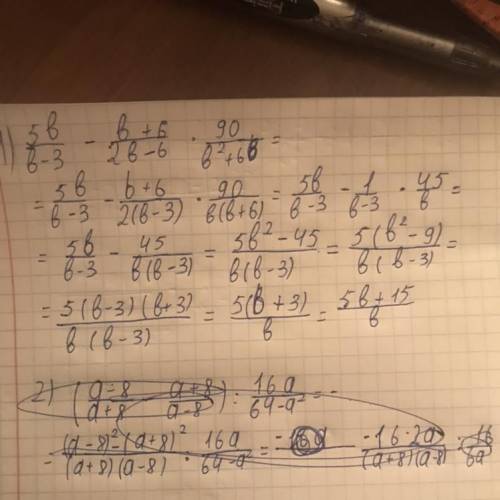 1) 5b/(b-3) - (b+6)/(2b-6) · 90/(b²+6b) =
= 5b/(b-3) - (b+6)/(2(b-3)) · 90/(b(b+6)) = 5b/(b-3) - 1/(b-3) · 45/b =
= 5b/(b-3) - 45/(b(b-3)) = (5b²-45)/(b(b-3)) = 5(b²-9)/(b(b-3)) =
= 5(b-3)(b+3)/(b(b-3)) = 5(b+3)/b = (5b+15)/b
2) ((a-8)/(a+8) - (a+8)/(a-8)) : 16a/(64-a²) =
- ((a-8)²-(a+8)²)/((a+8)(a-8)) · 16a/(64-a) = (-16·2a)/((a+8)(a-8)) :